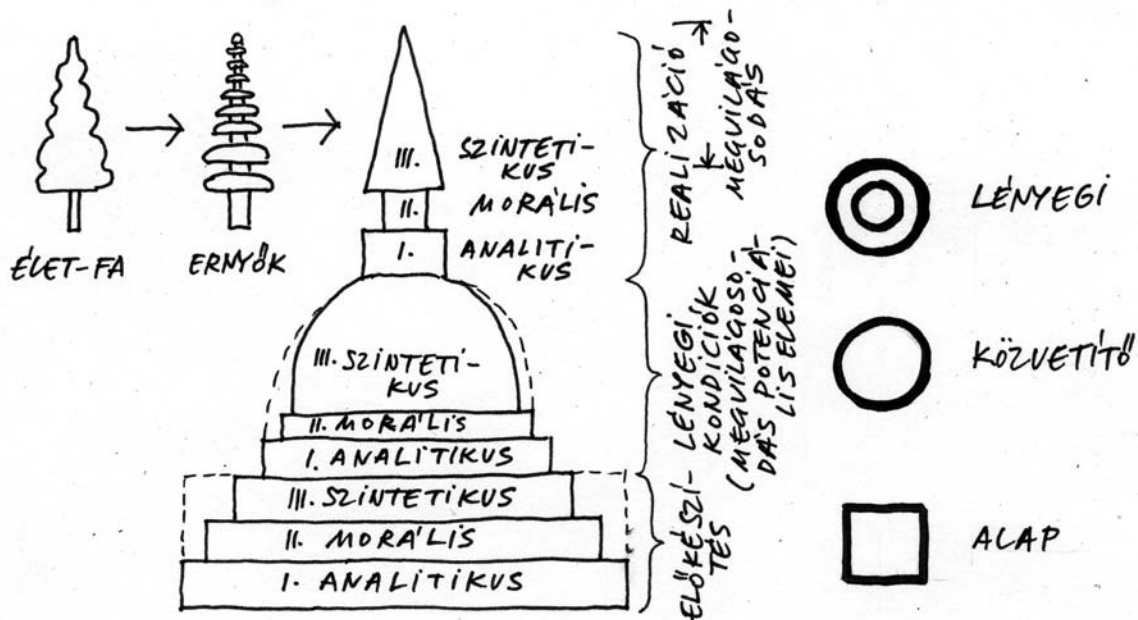 ÉLET-FA
ERNYŐK
III.
SZINTETI-
KUS
II.
MORÁLIS
I.
ANALITI-
KUS
III. SZINTETI-
KUS
II. MORÁLIS
I. ANALÍTIKUS
III. SZINTETIKUS
II. MORÁLIS
I. ANALÍTIKUS
REALIZÁCIÓ
MEGVILÁGO-
SODÁS
LÉNYEGI
KONDÍCIÓK
(MEGVILÁGOSO-
DÁS POTENCIÁ-
LIS ELEMEI)
ELŐKÉSZÍ-
TÉS
LÉNYEGI
KÖZVETÍTŐ
ALAP